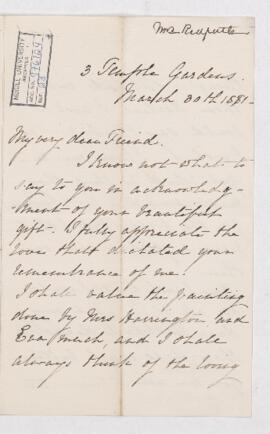 Mrs Redpath
McGILL UNIVERSITY
ARCHIVES
ACC. NO.
REF.
3 Temple Gardens.
March 30th 1881
My very dear Friend.
I know not what to
say to you in acknowledg-
-ment of your beautiful
gift. I fully appreciate the
love that dictated your
remembrance of me.
I shall value the painting
done by Mrs Harrington and
Eva much, and I shall
always think of the loving